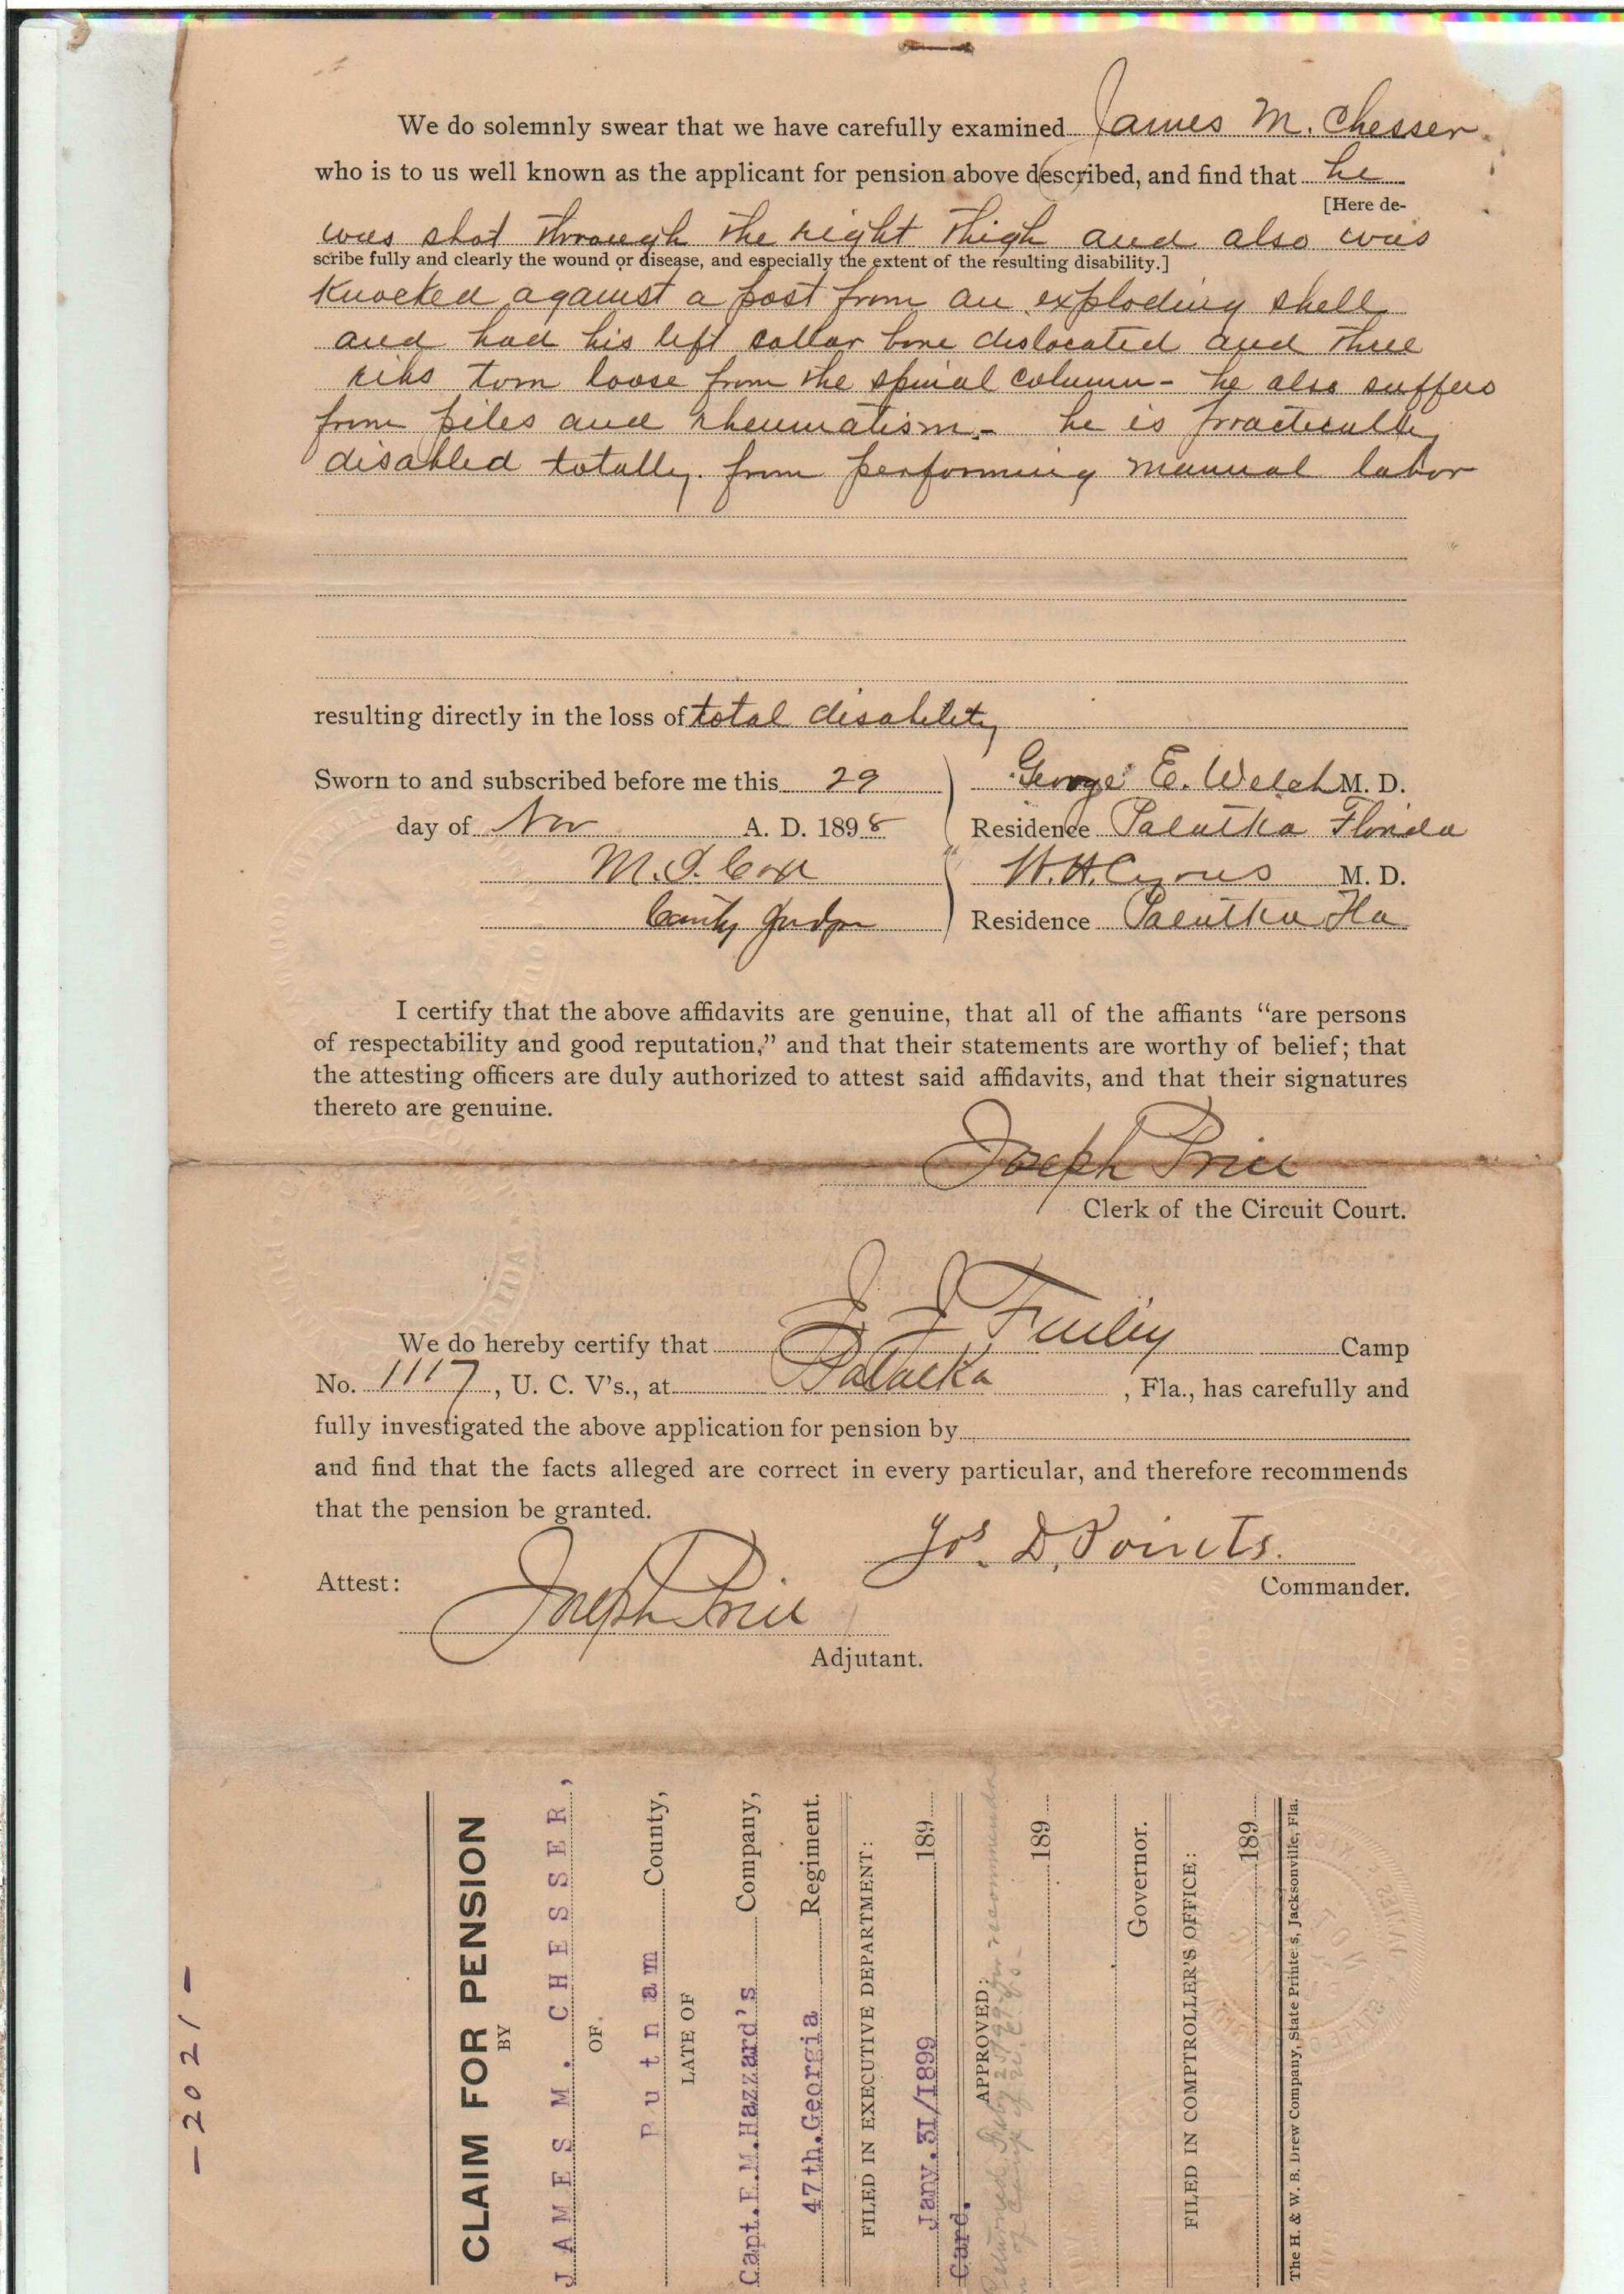 We do solemnly swear that we have carefully examined James M. Chesser
who is to us well known as the applicant for pension above described, and find that he
[Here de-
was shot through the right thigh and also was
scribe fully and clearly the wound or disease, and especially the extent of the resulting disability.]
Knocked against a post from an exploding shell
and had his left collar bone dislocated and three
ribs torn loose from the spinal column - he also suffers
from piles and rheumatism. - he is practically
disabled totally from performing manual labor
resulting directly in the loss of total disability
Sworn to and subscribed before me this 29 George E. Welch M. D.
day of Nov A. D. 1898 Residence Palatka Florida
M. I. Cox W. H. Cyrus M. D.
County Judge Residence Palatka Fla
I certify that the above affidavits are genuine, that all of the affiants "are persons
of respectability and good reputation," and that their statements are worthy of belief; that
the attesting officers are duly authorized to attest said affidavits, and that their signatures
thereto are genuine.
Joseph Price
Clerk of the Circuit Court.
We do hereby certify that J J Finley Camp
No. 1117, U. C. V's., at Palatka, Fla., has carefully and
fully investigated the above application for pension by
and find that the facts alleged are correct in every particular, and therefore recommends
that the pension be granted.
Jos. D. Points.
Commander.
Attest:
Joseph Price
Adjutant.
-2021-
CLAIM FOR PENSION
BY
JAMES M. CHESSER,
OF
Putnam County,
LATE OF
Capt. E.M. Hazzard's Company,
47th. Georgia Regiment.
FILED IN EXECUTIVE DEPARTMENT:
Jany. 31/1899 189
Card.
APPROVED:
189
Governor.
FILED IN COMPTROLLER'S OFFICE:
189
The H. & W. B. Drew Company, State Printers, Jacksonville, Fla.